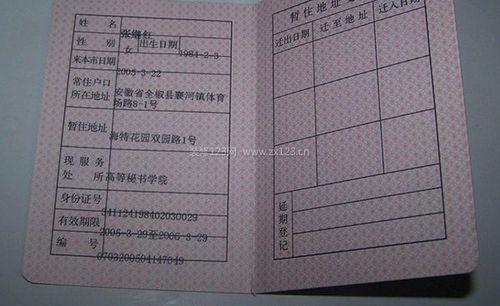 姓 名 张继红
性 别 女 出生日期 1984-2-3
来本市日期 2005-3-22
常住户口
所在地址 安徽省全椒县襄河镇体育
场路8-1号
暂住地址 海特花园双园路1号
现 服 务
处 所 高等秘书学院
身份证号 341124198402030029
有效期限 2005-3-29至2006-3-29
编 号 0703200504147849
暂住地址
迁出日期 迁至地址 迁入日期
延期登记
装修123网 www.zx123.cn